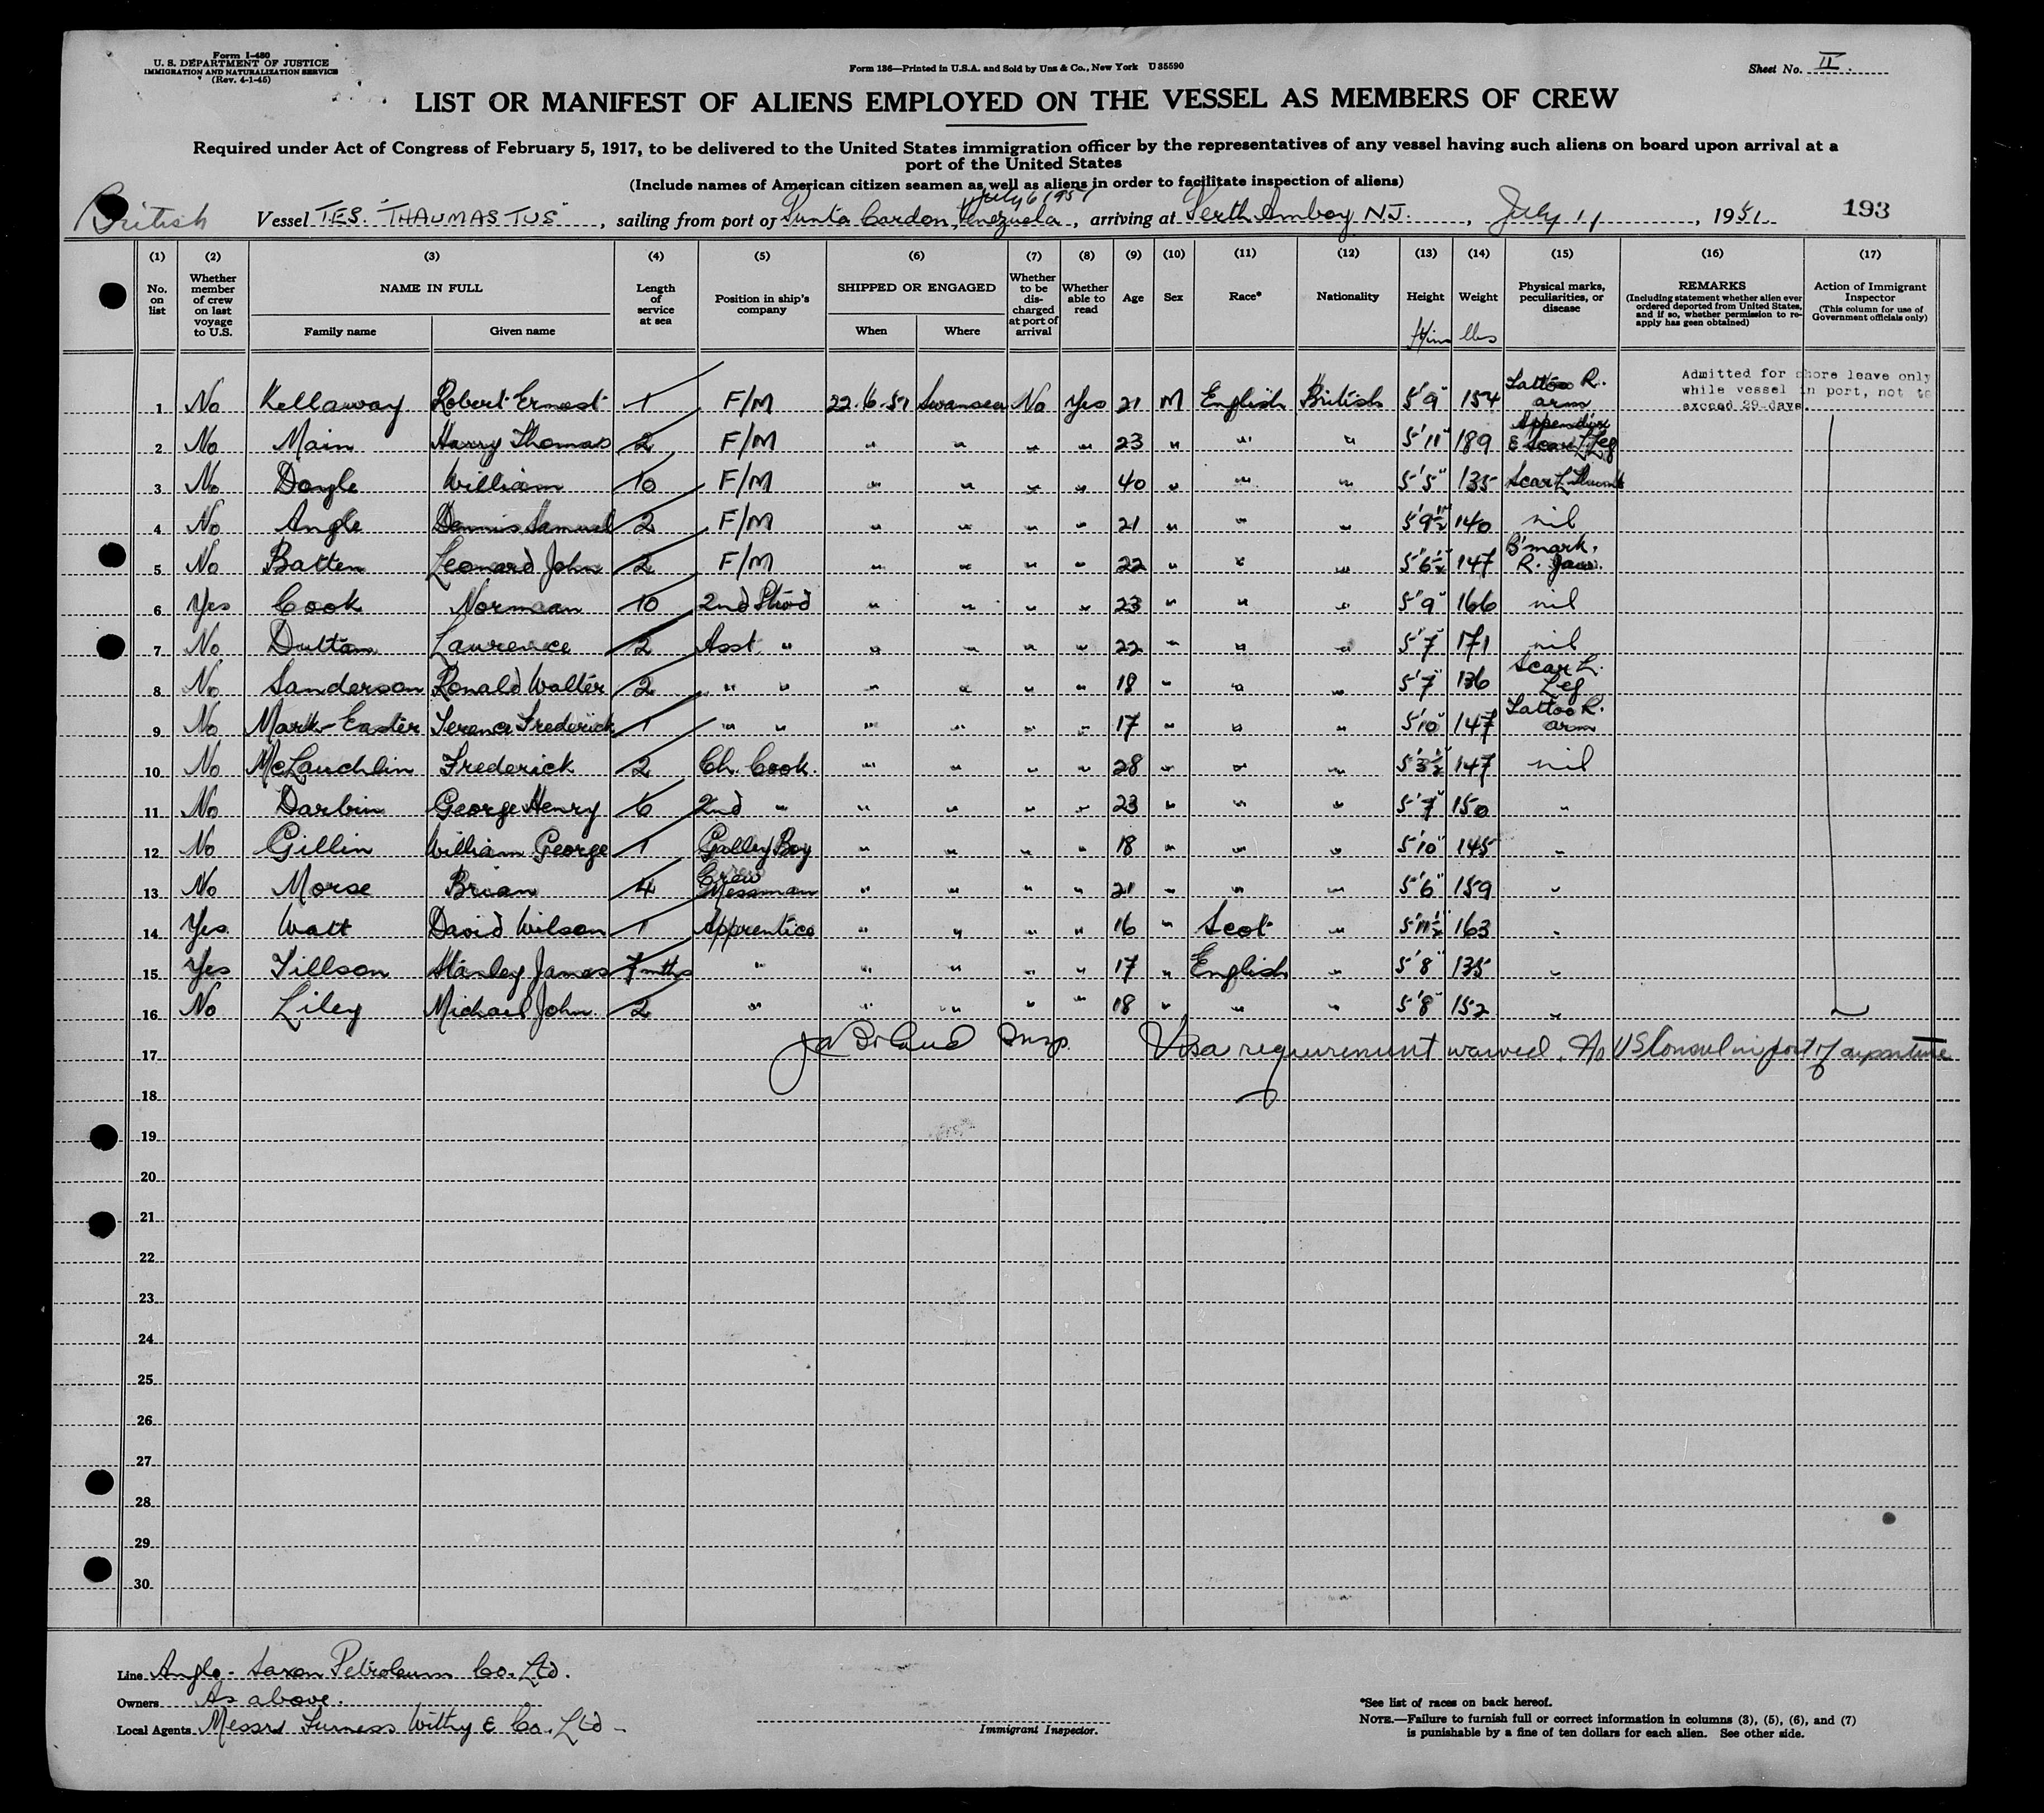 Form I-480
U. S. DEPARTMENT OF JUSTICE
IMMIGRATION AND NATURALIZATION SERVICE
(Rev. 4-1-45)
Form 136—Printed in U.S.A. and Sold by Unz & Co., New York U 35590
Sheet No. II.
LIST OR MANIFEST OF ALIENS EMPLOYED ON THE VESSEL AS MEMBERS OF CREW
Required under Act of Congress of February 5, 1917, to be delivered to the United States immigration officer by the representatives of any vessel having such aliens on board upon arrival at a
port of the United States
(Include names of American citizen seamen as well as aliens in order to facilitate inspection of aliens)
July 6 1951
British Vessel T.E.S. "THAUMASTUS", sailing from port of Punta Cardon, Venezuela, arriving at Perth Amboy NJ., July 11, 1951 193
(1) No. on list (2) Whether member of crew on last voyage to U.S. (3) NAME IN FULL Family name Given name (4) Length of service at sea (5) Position in ship's company (6) SHIPPED OR ENGAGED When Where (7) Whether to be discharged at port of arrival (8) Whether able to read (9) Age (10) Sex (11) Race* (12) Nationality (13) Height ft/ins (14) Weight lbs (15) Physical marks, peculiarities, or disease (16) REMARKS (Including statement whether alien ever ordered deported from United States, and if so, whether permission to re-apply has geen obtained) (17) Action of Immigrant Inspector (This column for use of Government officials only)
Admitted for shore leave only
while vessel in port, not to
exceed 29 days.
1 No Kellaway Robert Ernest 1 F/M 22.6.51 Swansea No Yes 21 M English British 5'9" 154 Tattoo R. arm
2 No Main Harry Thomas 2 F/M " " " " 23 " " " 5'11" 189 Appendix & Scar L Leg
3 No Doyle William 10 F/M " " " " 40 " " " 5'5" 135 Scar L Thumb
4 No Angle Dennis Samuel 2 F/M " " " " 21 " " " 5'9½" 140 nil
5 No Batten Leonard John 2 F/M " " " " 22 " " " 5'6½" 147 B'mark. R. Jaw.
6 Yes Cook Norman 10 2nd Stwd " " " " 23 " " " 5'9" 166 nil
7 No Dutton Laurence 2 Asst. " " " " " 22 " " " 5'7" 171 nil
8 No Sanderson Ronald Walter 2 " " " " " " 18 " " " 5'7" 136 Scar L. Leg
9 No Mark-Easter Terence Frederick 1 " " " " " " 17 " " " 5'10" 147 Tattoo R. arm
10 No McLauchlin Frederick 2 Ch. Cook. " " " " 28 " " " 5'3½" 147 nil
11 No Darbin George Henry 6 2nd " " " " " 23 " " " 5'7" 150 "
12 No Gillin William George 1 Galley Boy " " " " 18 " " " 5'10" 145 "
13 No Morse Brian 4 Crew Messman " " " " 21 " " " 5'6" 159 "
14 Yes Watt David Wilson 1 Apprentice " " " " 16 " Scot " 5'11½" 163 "
15 Yes Tillson Stanley James 7 mths " " " " " 17 " English " 5'8" 135 "
16 No Liley Michael John 2 " " " " " 18 " " " 5'8" 152 "
17 Insp. Visa requirement waived. No US Consul in port of departure
18
19
20
21
22
23
24
25
26
27
28
29
30
Line Anglo-Saxon Petroleum Co. Ltd.
Owners As above.
Local Agents Messrs Furness Withy & Co. Ltd
Immigrant Inspector.
*See list of races on back hereof.
NOTE.—Failure to furnish full or correct information in columns (3), (5), (6), and (7)
is punishable by a fine of ten dollars for each alien. See other side.